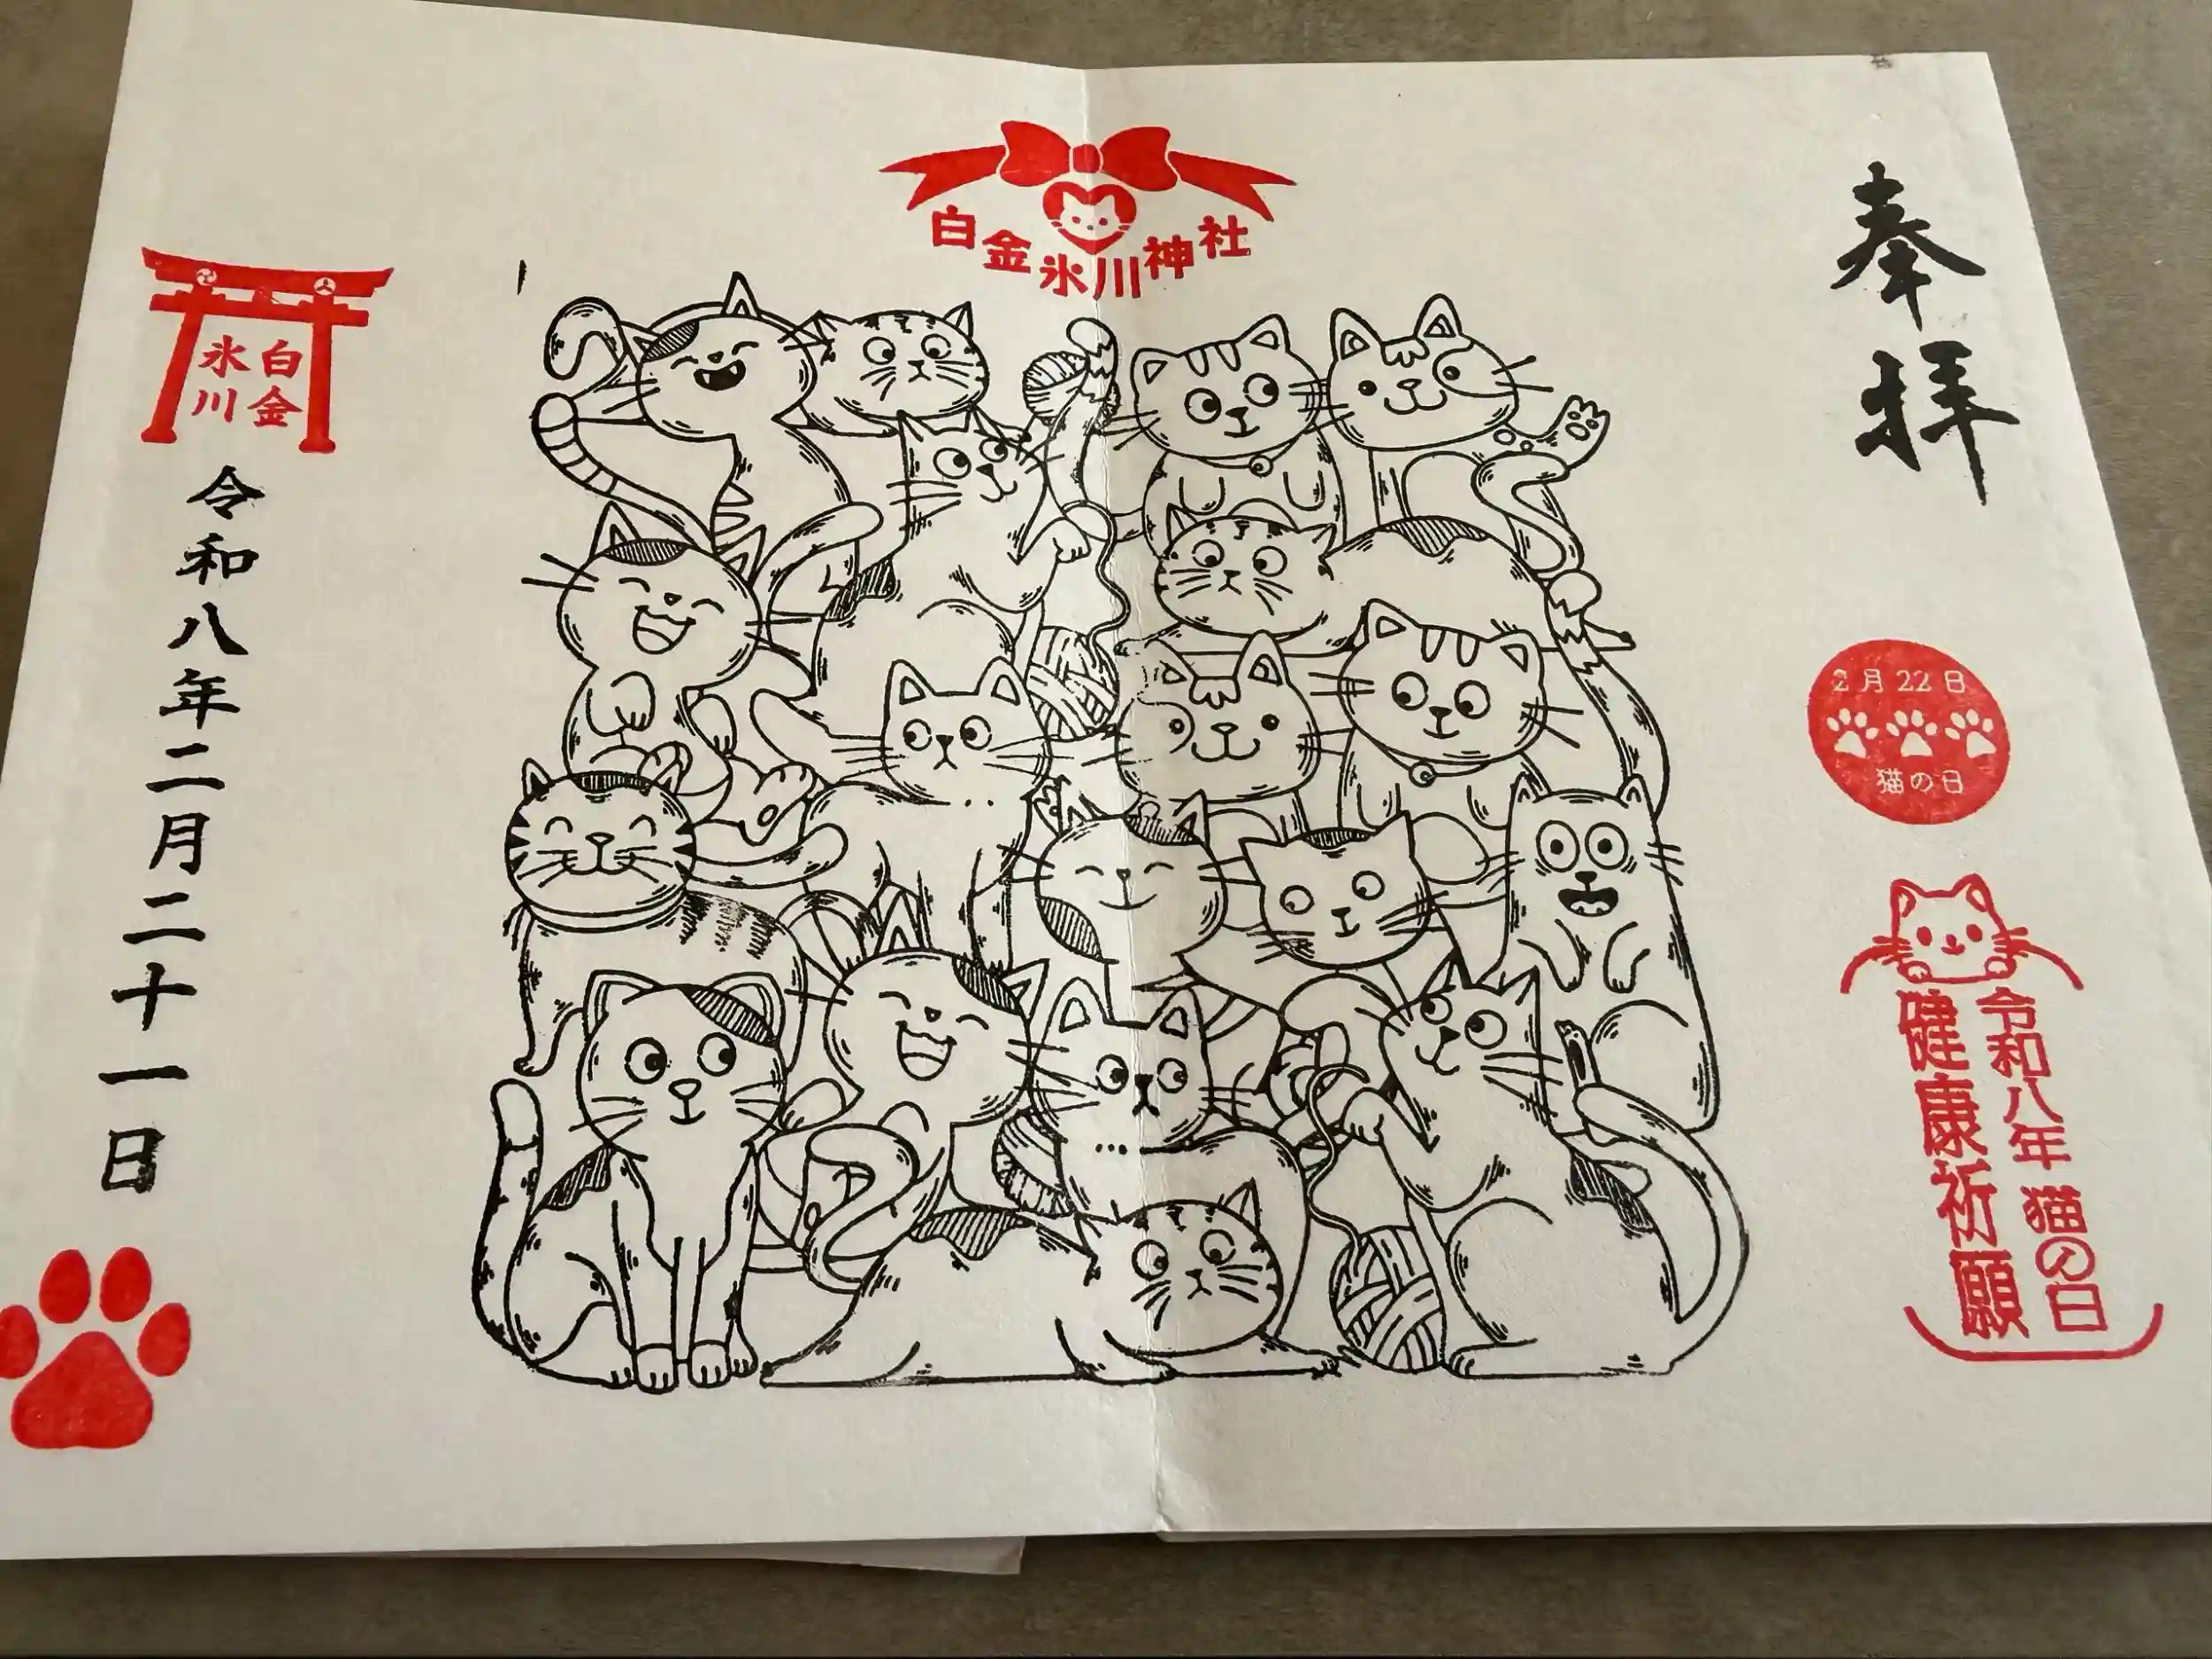 奉拝
2月22日
猫の日
令和八年 猫の日
健康祈願
白金氷川神社
白金
氷川
令和八年二月二十一日